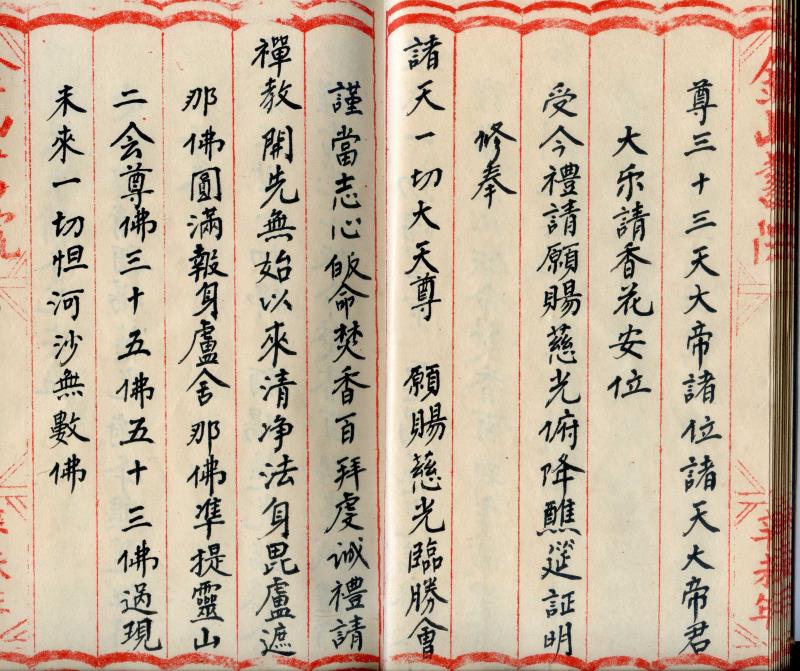 尊三十三天大帝諸位諸天大帝君
大乐請香花安位
受今禮請願賜慈光俯降醮筵証明
修奉
諸天一切大天尊　願賜慈光臨勝會
謹當志心皈命焚香百拜虔誠禮請
禪教開先無始以來清净法身毘盧遮
那佛圓滿報身盧舍那佛準提靈山
二会尊佛三十五佛五十三佛過現
未來一切恒河沙無數佛